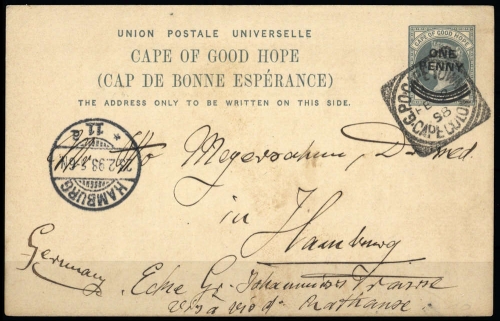 UNION POSTALE UNIVERSELLE
CAPE OF GOOD HOPE
(CAP DE BONNE ESPÉRANCE)
THE ADDRESS ONLY TO BE WRITTEN ON THIS SIDE.
CAPE OF GOOD HOPE
ONE
PENNY
98
HAMBURG
2.98
* 11
Otto Megersahm, Dr med.
in
Hamburg
Germany
Ecke Gr. Johannisstrasse
vis à vis d. Rathause